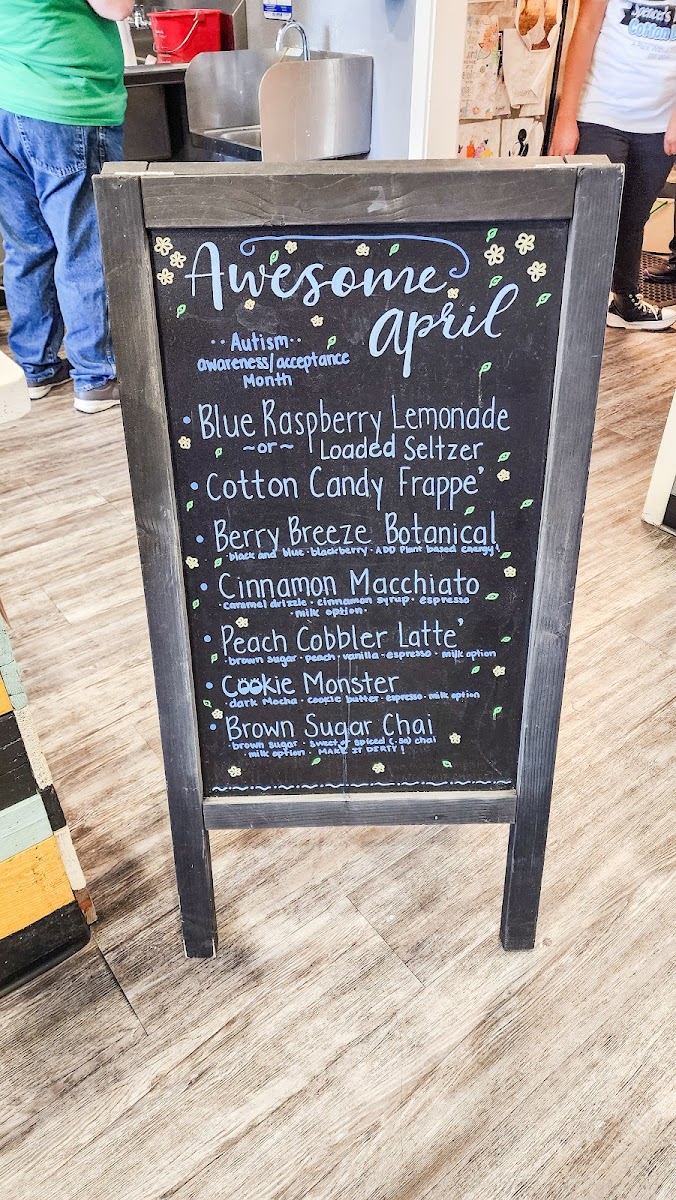 Awesome
April
·· Autism ··
awareness/acceptance
Month
• Blue Raspberry Lemonade
~or~ Loaded Seltzer
• Cotton Candy Frappe'
• Berry Breeze Botanical
black and blue · blackberry · ADD Plant based energy!
• Cinnamon Macchiato
· caramel drizzle · cinnamon syrup · espresso
· milk option ·
• Peach Cobbler Latte'
· brown sugar · peach · vanilla · espresso · milk option
• Cookie Monster
· dark Mocha · cookie butter · espresso · milk option
• Brown Sugar Chai
· brown sugar · sweet or spiced (.50) chai
· milk option · MAKE IT DIRTY!